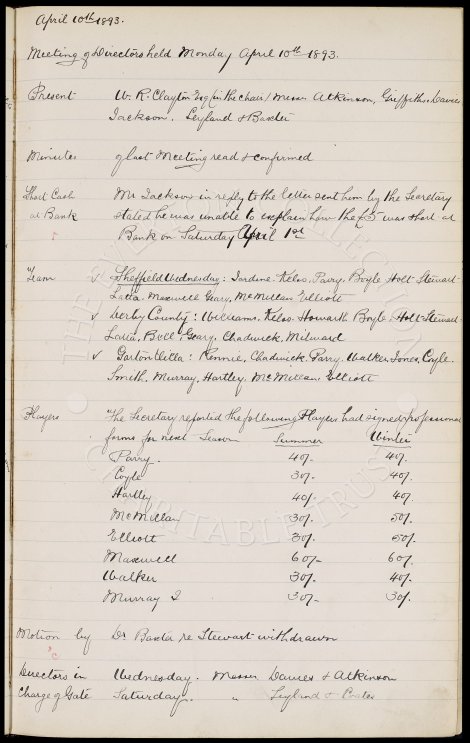 April 10th 1893.
Meeting of Directors held Monday April 10th 1893.
Present W. R. Clayton Esq (in the chair) Messrs Atkinson, Griffiths, Davies
Jackson, Leyland & Baxter
Minutes of last Meeting read & confirmed
Short Cash Mr Jackson in reply to the letter sent him by the Secretary
at Bank stated he was unable to explain how the £5 was short at
Bank on Saturday April 1st
Team v Sheffield Wednesday: Jardine, Kelso, Parry, Boyle Holt Stewart
Latta, Maxwell Geary, McMillan, Elliott
v Derby County: Williams, Kelso, Howarth, Boyle, Holt Stewart
Latta, Bell, Geary, Chadwick, Milward
v Gorton Villa: Rennie, Chadwick, Parry, Walker, Jones, Coyle,
Smith, Murray, Hartley, McMillan, Elliott
Players The Secretary reported the following Players had signed professional
forms for next Season Summer Winter
Parry. 40/- 40/-
Coyle 30/- 40/-
Hartley 40/- 40/-
McMillan 30/- 50/-
Elliott 30/- 50/-
Maxwell 60/- 60/-
Walker 30/- 40/-
Murray J 30/- 30/-
Motion by Dr Baxter re Stewart withdrawn
Directors in Wednesday. Messrs Davies & Atkinson
Charge of Gate Saturday. " Leyland & Coates